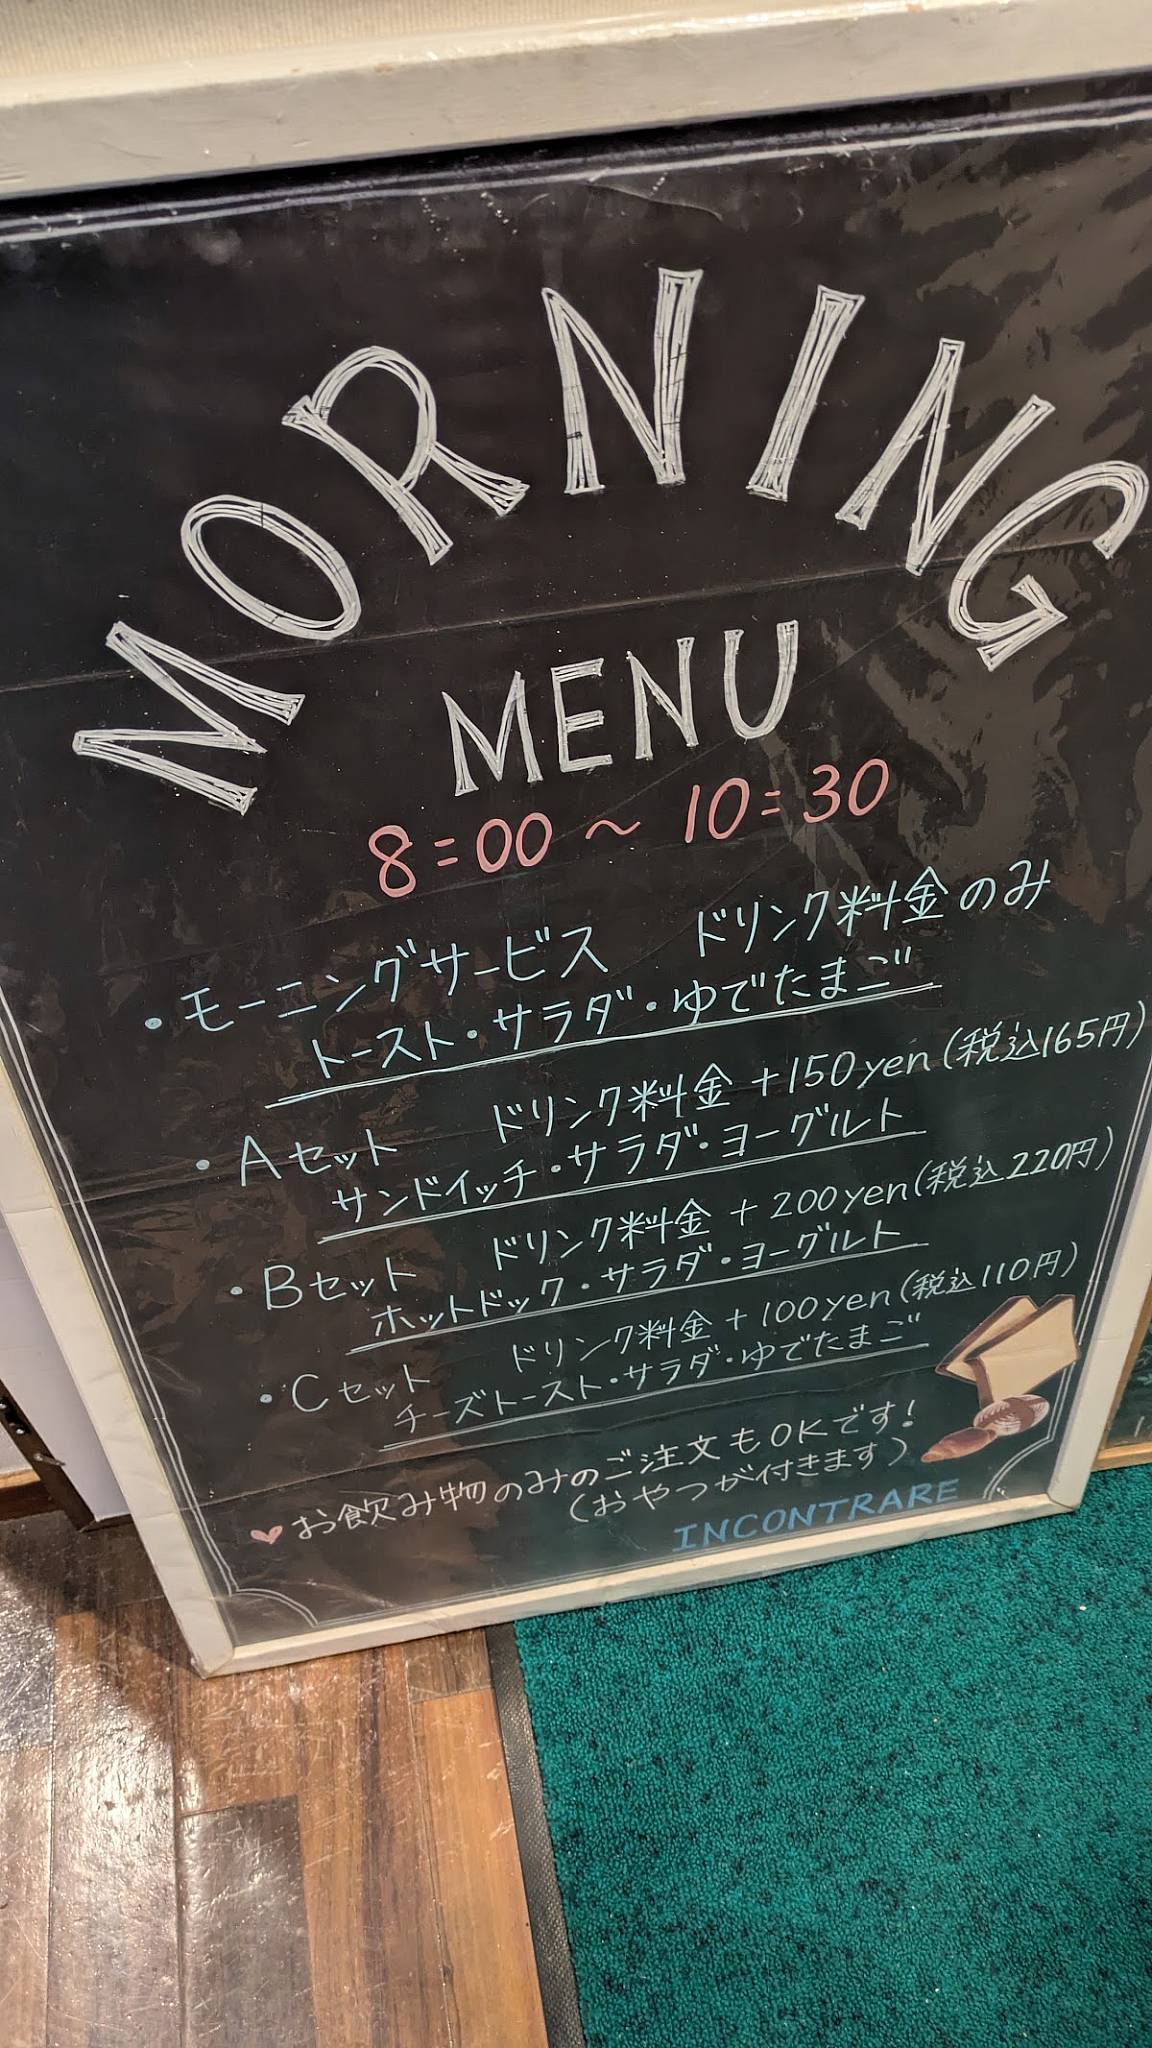 MORNING
MENU
8:00 ～ 10:30
・モーニングサービス ドリンク料金のみ
トースト・サラダ・ゆでたまご
・Aセット ドリンク料金 +150yen(税込165円)
サンドイッチ・サラダ・ヨーグルト
・Bセット ドリンク料金 +200yen(税込220円)
ホットドック・サラダ・ヨーグルト
・Cセット ドリンク料金 +100yen(税込110円)
チーズトースト・サラダ・ゆでたまご
♥お飲み物のみのご注文もOKです!
(おやつが付きます)
INCONTRARE